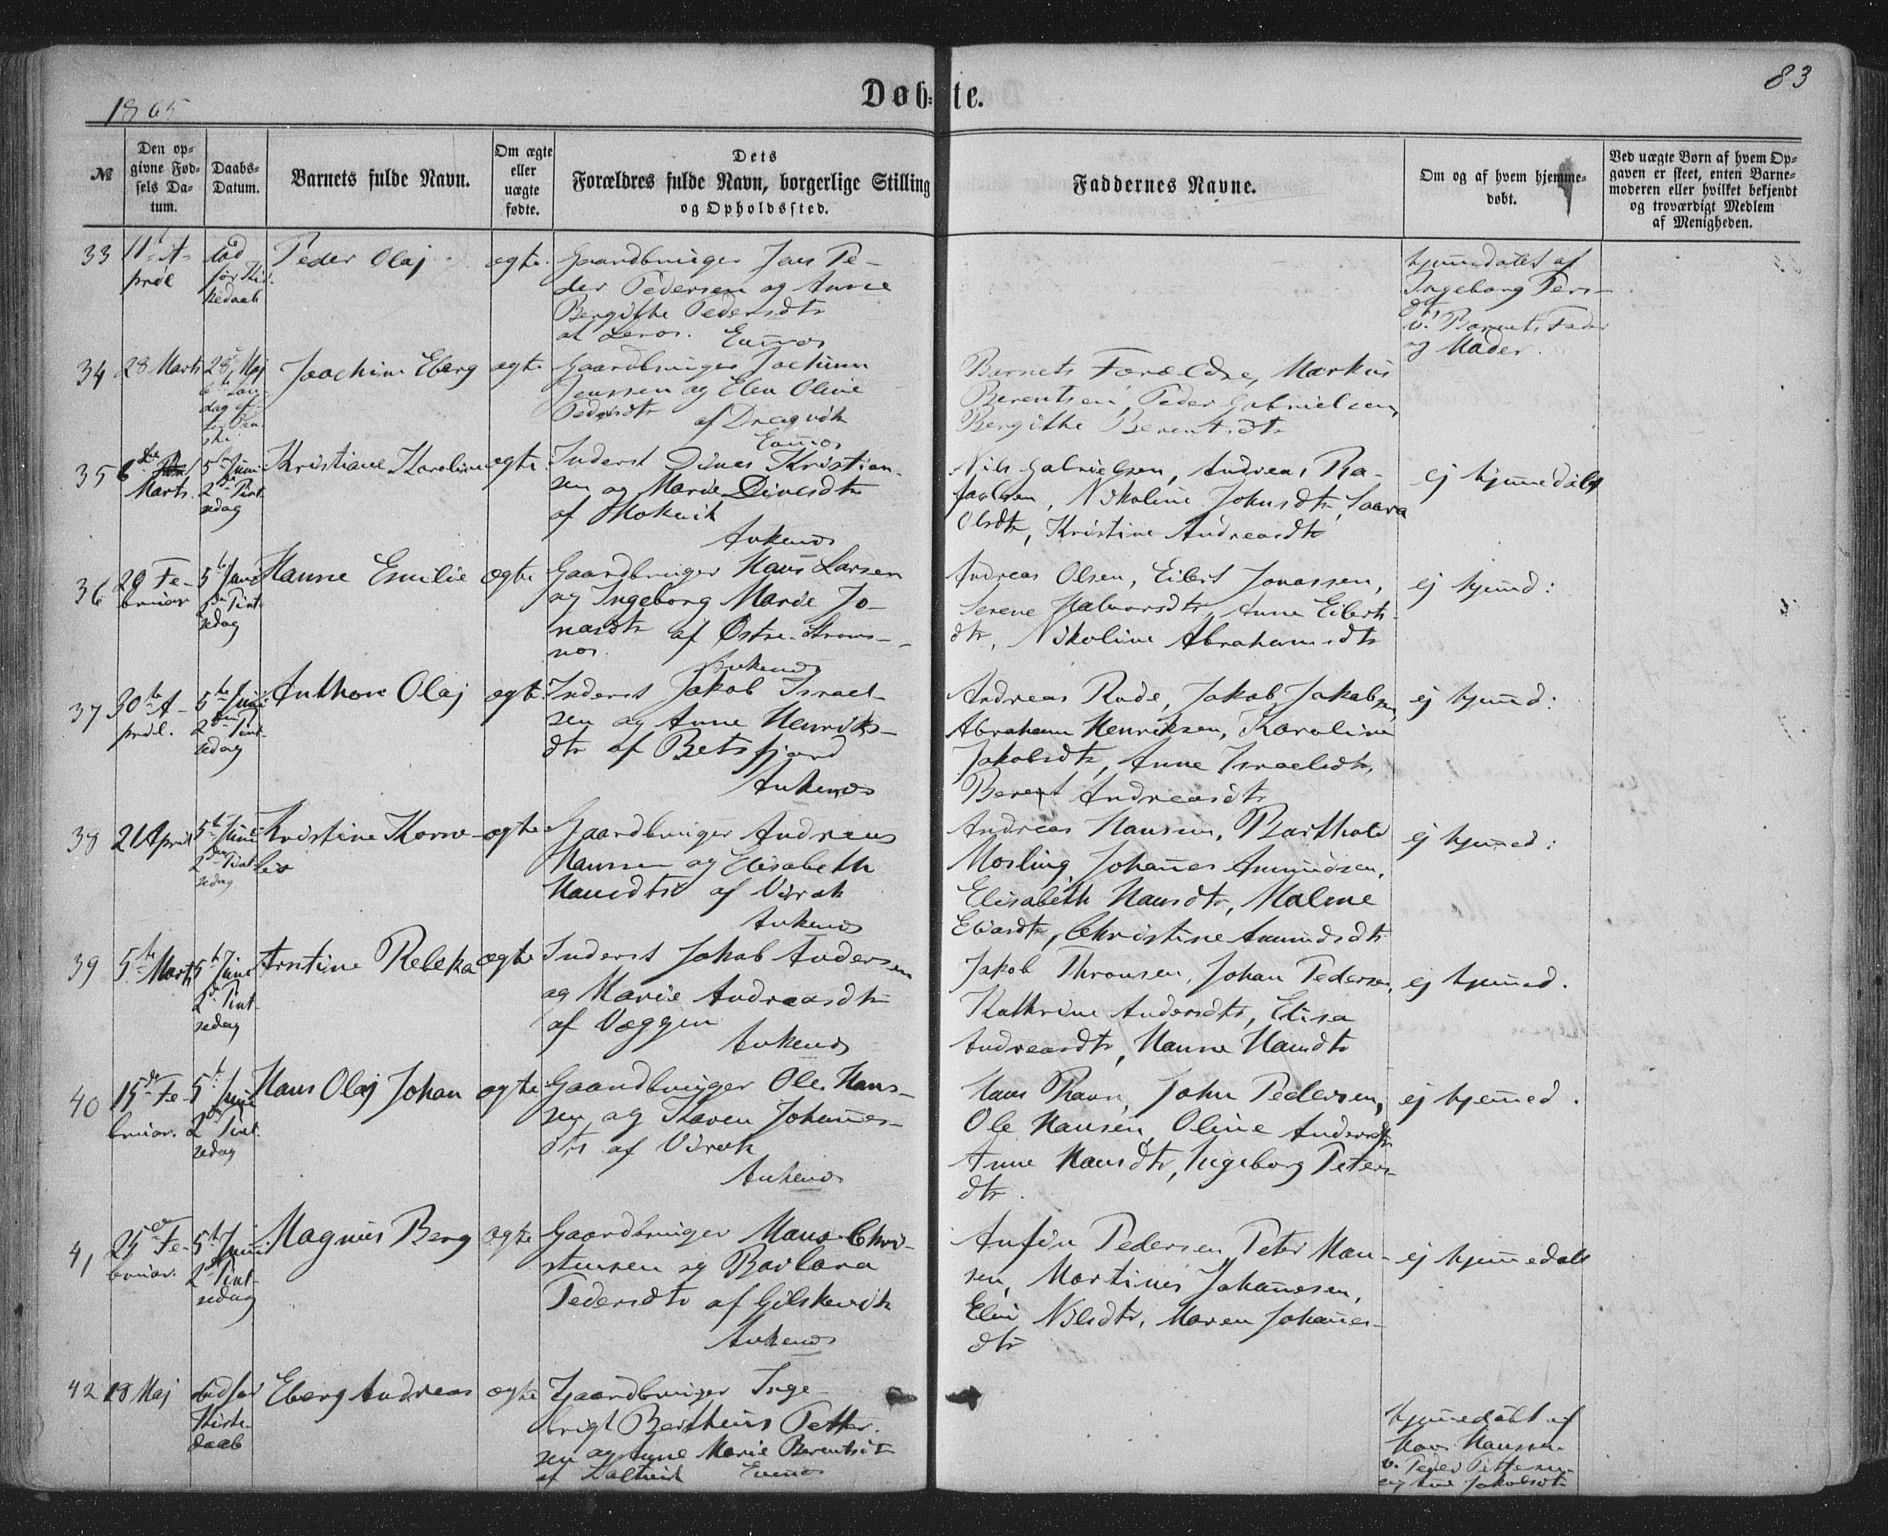 1865
Døbte.
83
№
Den opgivne Fødsels Datum.
Daabs-Datum.
Barnets fulde Navn.
Om ægte eller uægte fødte.
Dets Forældres fulde Navn, borgerlige Stilling og Opholdssted.
Faddernes Navne.
Om og af hvem hjemmedøbt.
Ved uægte Børn af hvem Opgaven er skeet, enten Barnemoderen eller hvilket bekjendt og troværdigt Medlem af Menigheden.
33
11te A-
pril
død
før Kir-
kedaab
Peder Olaj
ægte
Gaardbruger Jens Pe-
der Pedersen og Anne
Bergithe Pedersdtr
af
Evenæs
hjemmedøbt af
Ingeborg Pers-
dtr
v. Barnets Fader
og Moder.
34
28 Marts
28 Maj
Joachim Eberg
ægte
Gaardbruger Jochum
Jenssen og Elen Oline
Pedersdtr af Dragvik
Evenæs
Barnets Forældre, Markus
Berentsen, Peder Gabrielsen,
Bergithe Berentsdtr
35
6te
Marts
5te Juni
2den Pint-
sedag
Kristiane Karoline
ægte
Inderst Dines Kristian-
sen og Marie Dinesdtr
af
Ankenæs
Nils Gabrielsen, Andreas Ra-
faelsen, Nikoline Johnsdtr, Saara
Olsdtr, Kristine Andreasdtr
ej hjemmedøbt
36
20 Fe-
bruar
5te Juni
2den Pint-
sedag
Hanne Emilie
ægte
Gaardbruger Hans Larsen
og Ingeborg Marie Jo-
nasdtr af Østre-Strøms-
næs
Ankenæs
Andreas Olsen, Eilert Jonassen,
Serene Halvorsdtr, Anne Eilerts-
dtr, Nikoline Abrahamsdtr
ej hjemmd:
37
30te A-
pril.
5te Juni
2den Pint-
sedag
Anthon Olaj
ægte
Inderst Jakob Israel-
sen og Anne Henriks-
dtr af Betsfjord
Ankenæs
Andreas Rode, Jakob Jakobsen,
Abraham Henriksen, Karoline
Jakobsdtr, Anne Israelsdtr,
Berent Andreasdtr
ej hjemmd:
38
21 April
5te Juni
2den Pint-
sedag
Kristine Korne-
lia
ægte
Gaardbruger Andreas
Hansen og Elisabeth
Hansdtr af Virak
Ankenæs
Andreas Hansen, Barthold
Mosling, Johannes Amundsen,
Elisabeth Hansdtr, Malene
Eliasdtr, Christine Amundsdtr
ej hjemmed:
39
5te Marts
5te Juni
2den Pint-
sedag
Arntine Rebekka
ægte
Inderst Jakob Andersen
og Marie Andreasdtr
af Væggen
Ankenæs
Jakob Thronsen, Johan Pedersen,
Kathrine Andersdtr, Elisa
Andreasdtr, Hanne Hansdtr
ej hjemmed.
40
15de Fe-
bruar.
5te Juni
2den Pint-
sedag
Hans Olaj Johan
ægte
Gaardbruger Ole Hans-
sen og Karen Johannes-
dtr af Virak
Ankenæs
Hans Ravn, John Pedersen,
Ole Hansen, Oline Andersdtr
Anne Hansdtr, Ingeborg Peters-
dtr.
ej hjemmed.
41
25de Fe-
bruar.
5te Juni
2den Pint-
sedag
Magnus Berg
ægte
Gaardbruger Hans Chri-
stensen og Barbara
Pedersdtr af Gilskevik
Ankenæs
Anfin Pedersen, Peter Han-
sen, Martines Johannesen,
Elen Nilsdtr, Maren Johannes-
dtr
ej hjemmedøbt
42
18 Maj
død før
Kirke-
daab
Eberg Andreas
ægte
Gaardbruger Inge-
brigt Bertheus Petter-
sen og Anne Marie Berentsdtr
af
Evenæs
hjemmedøbt af
Hans Hanssen
v. Peder Pettersen
og Ane Jakobsdtr